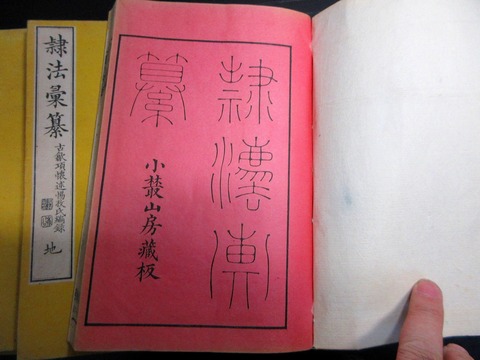 隸法彙
纂
小叢山房藏板
隸法彙纂
古歙項懷述惕孜氏編錄
地